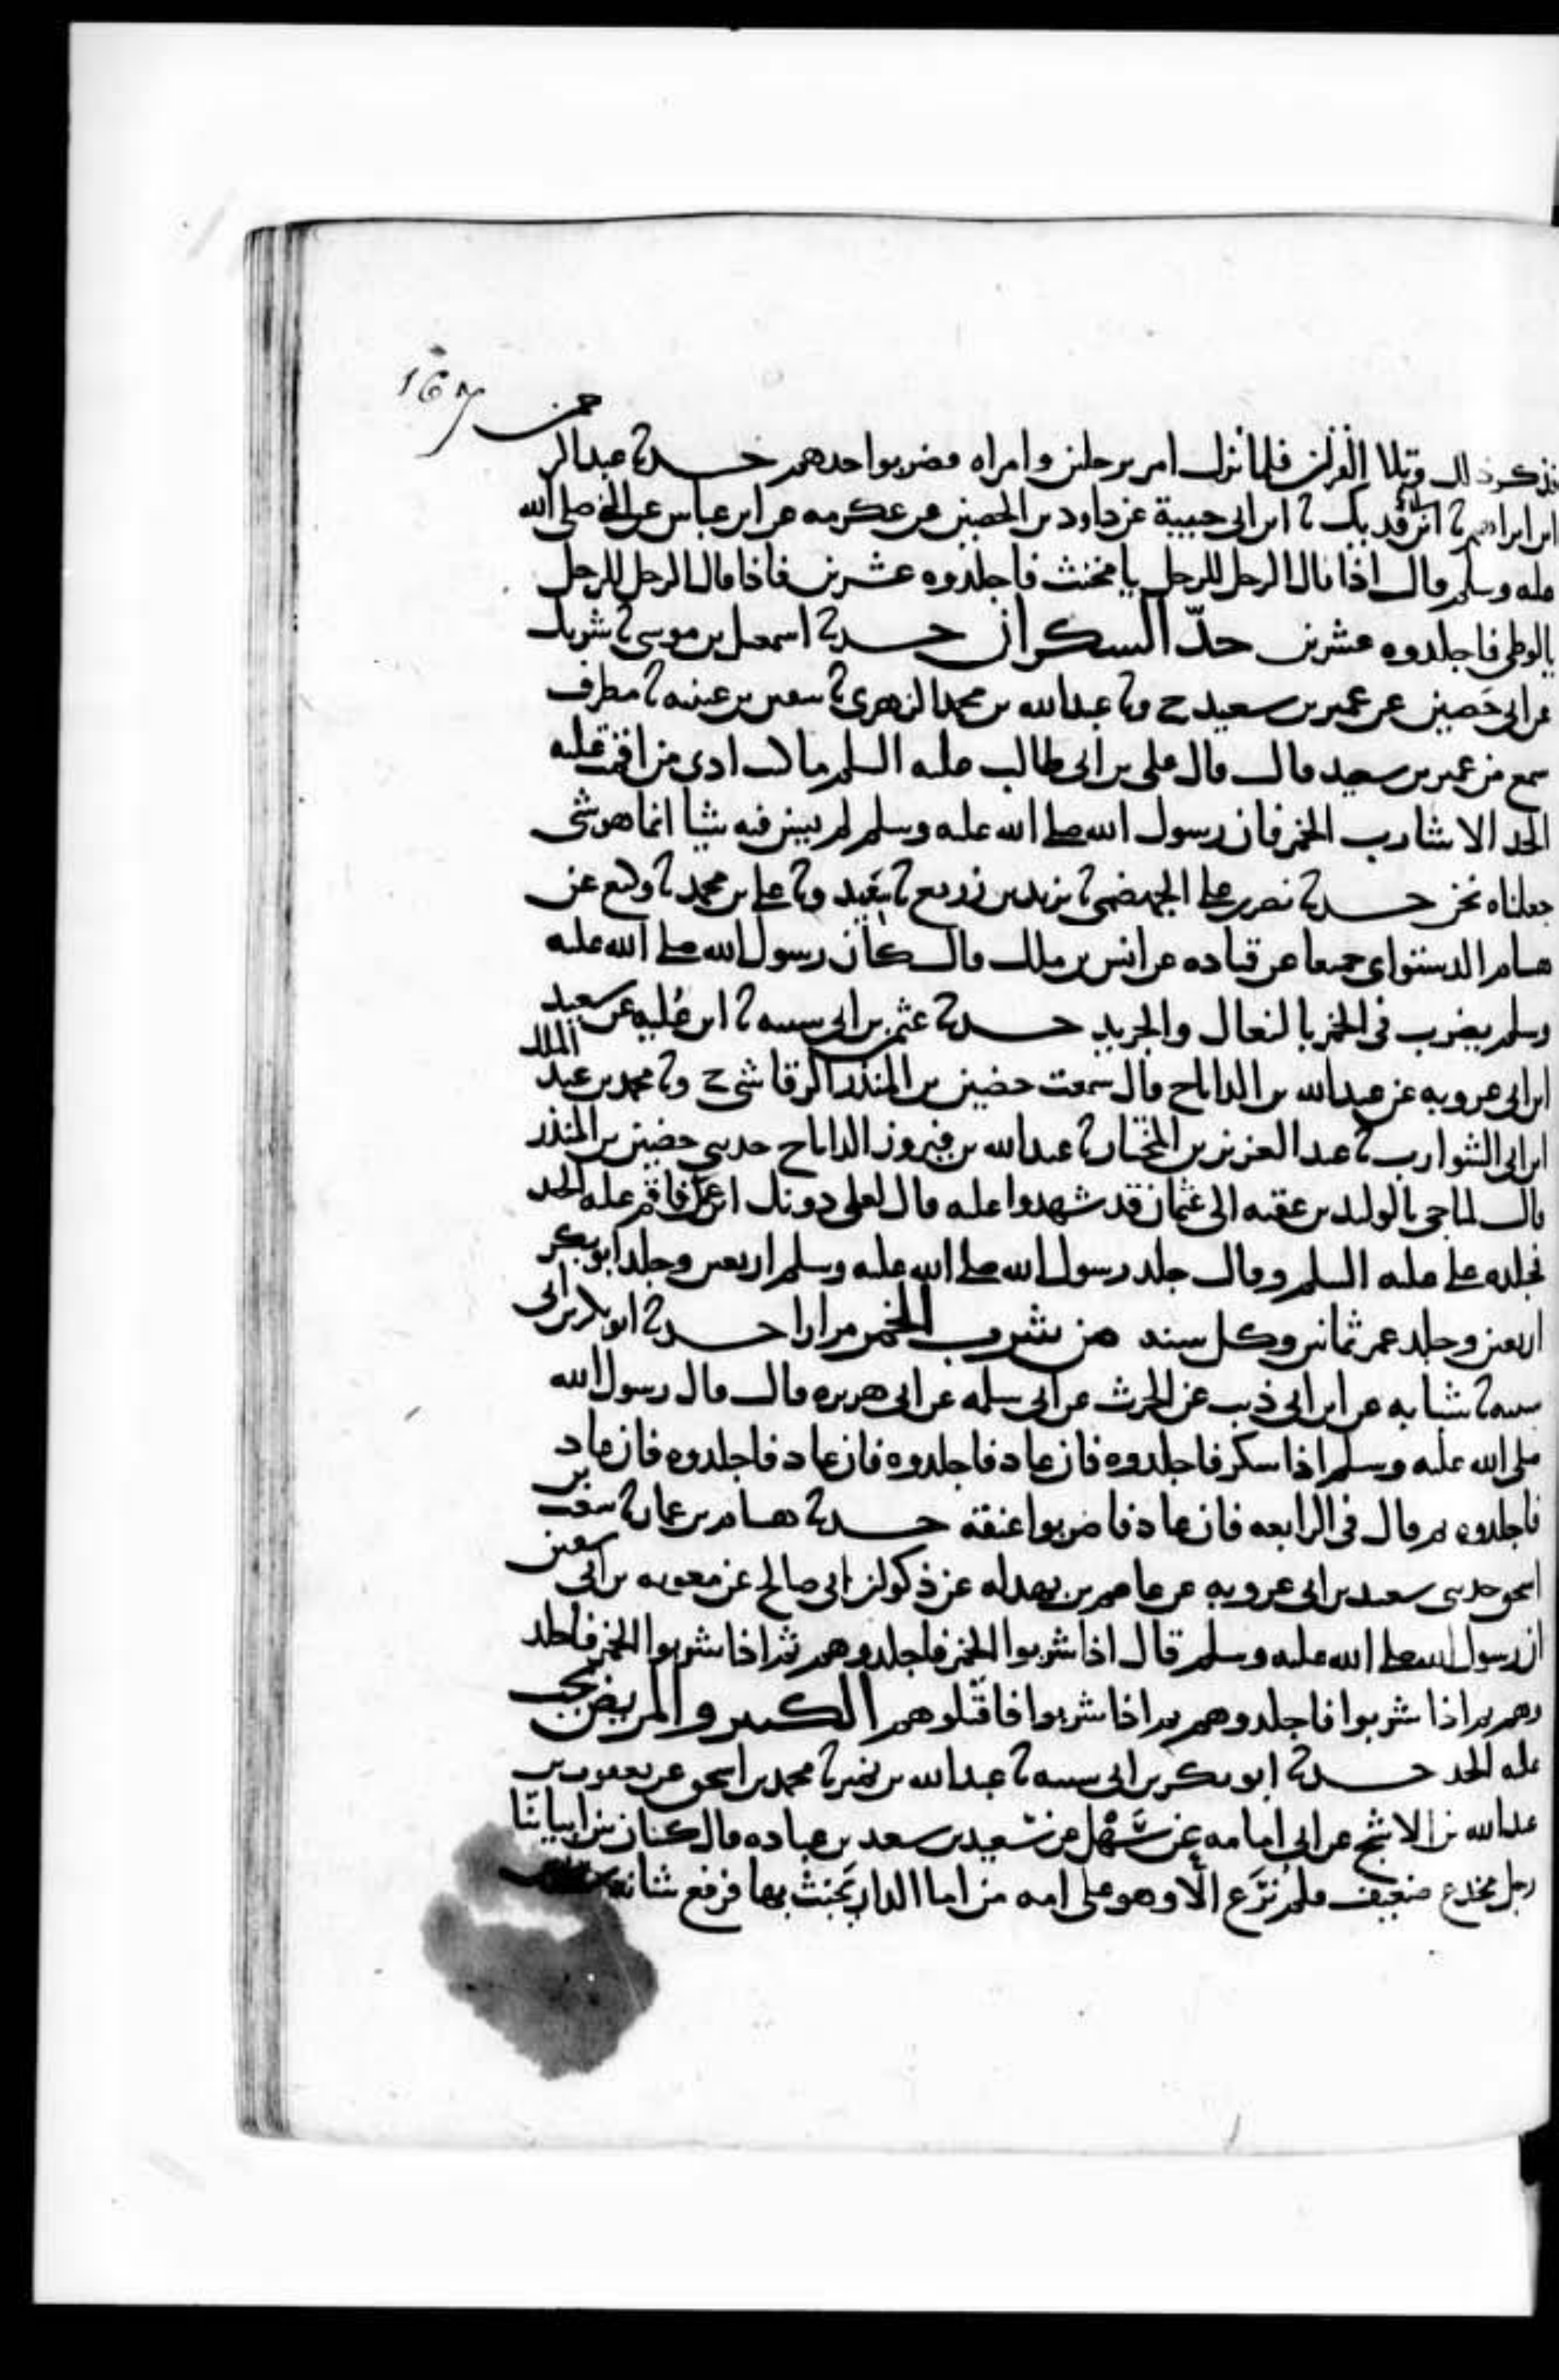 167
فذكر ذلك وتلا القرآن فلما نزل امر برجلين وامراه فضربوا حدهم حدثنا عبد الرحمن
ابن ابراهيم ثنا ابن ابي فديك ثنا ابن ابي حبيبة عن داود بن الحصين عن عكرمه عن ابن عباس عن النبي صلى الله
عليه وسلم قال اذا قال الرجل للرجل يا مخنث فاجلدوه عشرين فاذا قال الرجل للرجل
يالوطي فاجلدوه عشرين حدّ السكران حدثنا اسمعيل بن موسى ثنا شريك
عن ابي حَصين عن عمير بن سعيد ح وثنا عبد الله بن محمد الزهري ثنا سفين بن عيينه ثنا مطرف
سمع من عمير بن سعيد قال قال علي بن ابي طالب عليه السلم ما كنت ادي من اقمت عليه
الحد الا شارب الخمر فان رسول الله صلى الله عليه وسلم لم يبين فيه شيا انما هو شي
جعلناه نحن حدثنا نصر بن علي الجهضمي ثنا يزيد بن زريع ثنا سعيد وثنا علي بن محمد ثنا وكيع عن
هشام الدستواي جميعا عن قتاده عن انس بن ملك قال كان رسول الله صلى الله عليه
وسلم يضرب في الخمر بالنعال والجريد حدثنا عثمن بن ابي شيبه ثنا ابن عُليه عن سعيد
ابن ابي عروبه عن عبد الله بن الداناج قال سمعت حضين بن المنذر الرقاشي ح وثنا محمد بن عبد الملك
ابن ابي الشوارب ثنا عبد العزيز بن المختار ثنا عبد الله بن فيروز الداناج حدثني حضين بن المنذر
قال لما جي بالوليد بن عقبه الى عثمان قد شهدوا عليه قال لعلي دونك ابن عمك فاقم عليه الحد
فجلده علي عليه السلم وقال جلد رسول الله صلى الله عليه وسلم اربعين وجلد ابو بكر
اربعين وجلد عمر ثمانين وكل سنه من شرب الخمر مرارا حدثنا ابو بكر بن ابي
شيبه ثنا شبابه عن ابن ابي ذيب عن الحرث عن ابي سلمه عن ابي هريره قال قال رسول الله
صلى الله عليه وسلم اذا سكر فاجلدوه فان عاد فاجلدوه فان عاد فاجلدوه فان عاد
فاجلدوه ثم قال في الرابعه فان عاد فاضربوا عنقه حدثنا هشام بن عمار ثنا شعيب بن
اسحق حدثني سعيد بن ابي عروبه عن عاصم بن بهدله عن ذكوان ابي صالح عن معويه بن ابي سفين
ان رسول الله صلى الله عليه وسلم قال اذا شربوا الخمر فاجلدوهم ثم اذا شربوا الخمر فاجلد
وهم ثم اذا شربوا فاجلدوهم ثم اذا شربوا فاقتلوهم الكبير والمريض يجب
عليه الحد حدثنا ابو بكر بن ابي شيبه ثنا عبد الله بن نمير ثنا محمد بن اسحق عن يعقوب بن
عبد الله بن الاشج عن ابي امامه عن سَهْل عن سعيد بن سعد بن عباده قال كان بين ابياتنا
رجل مخدج ضعيف فلم نُرَع الّا وهو على امه من اما الدار يَخبثُ بها فرفع شانه